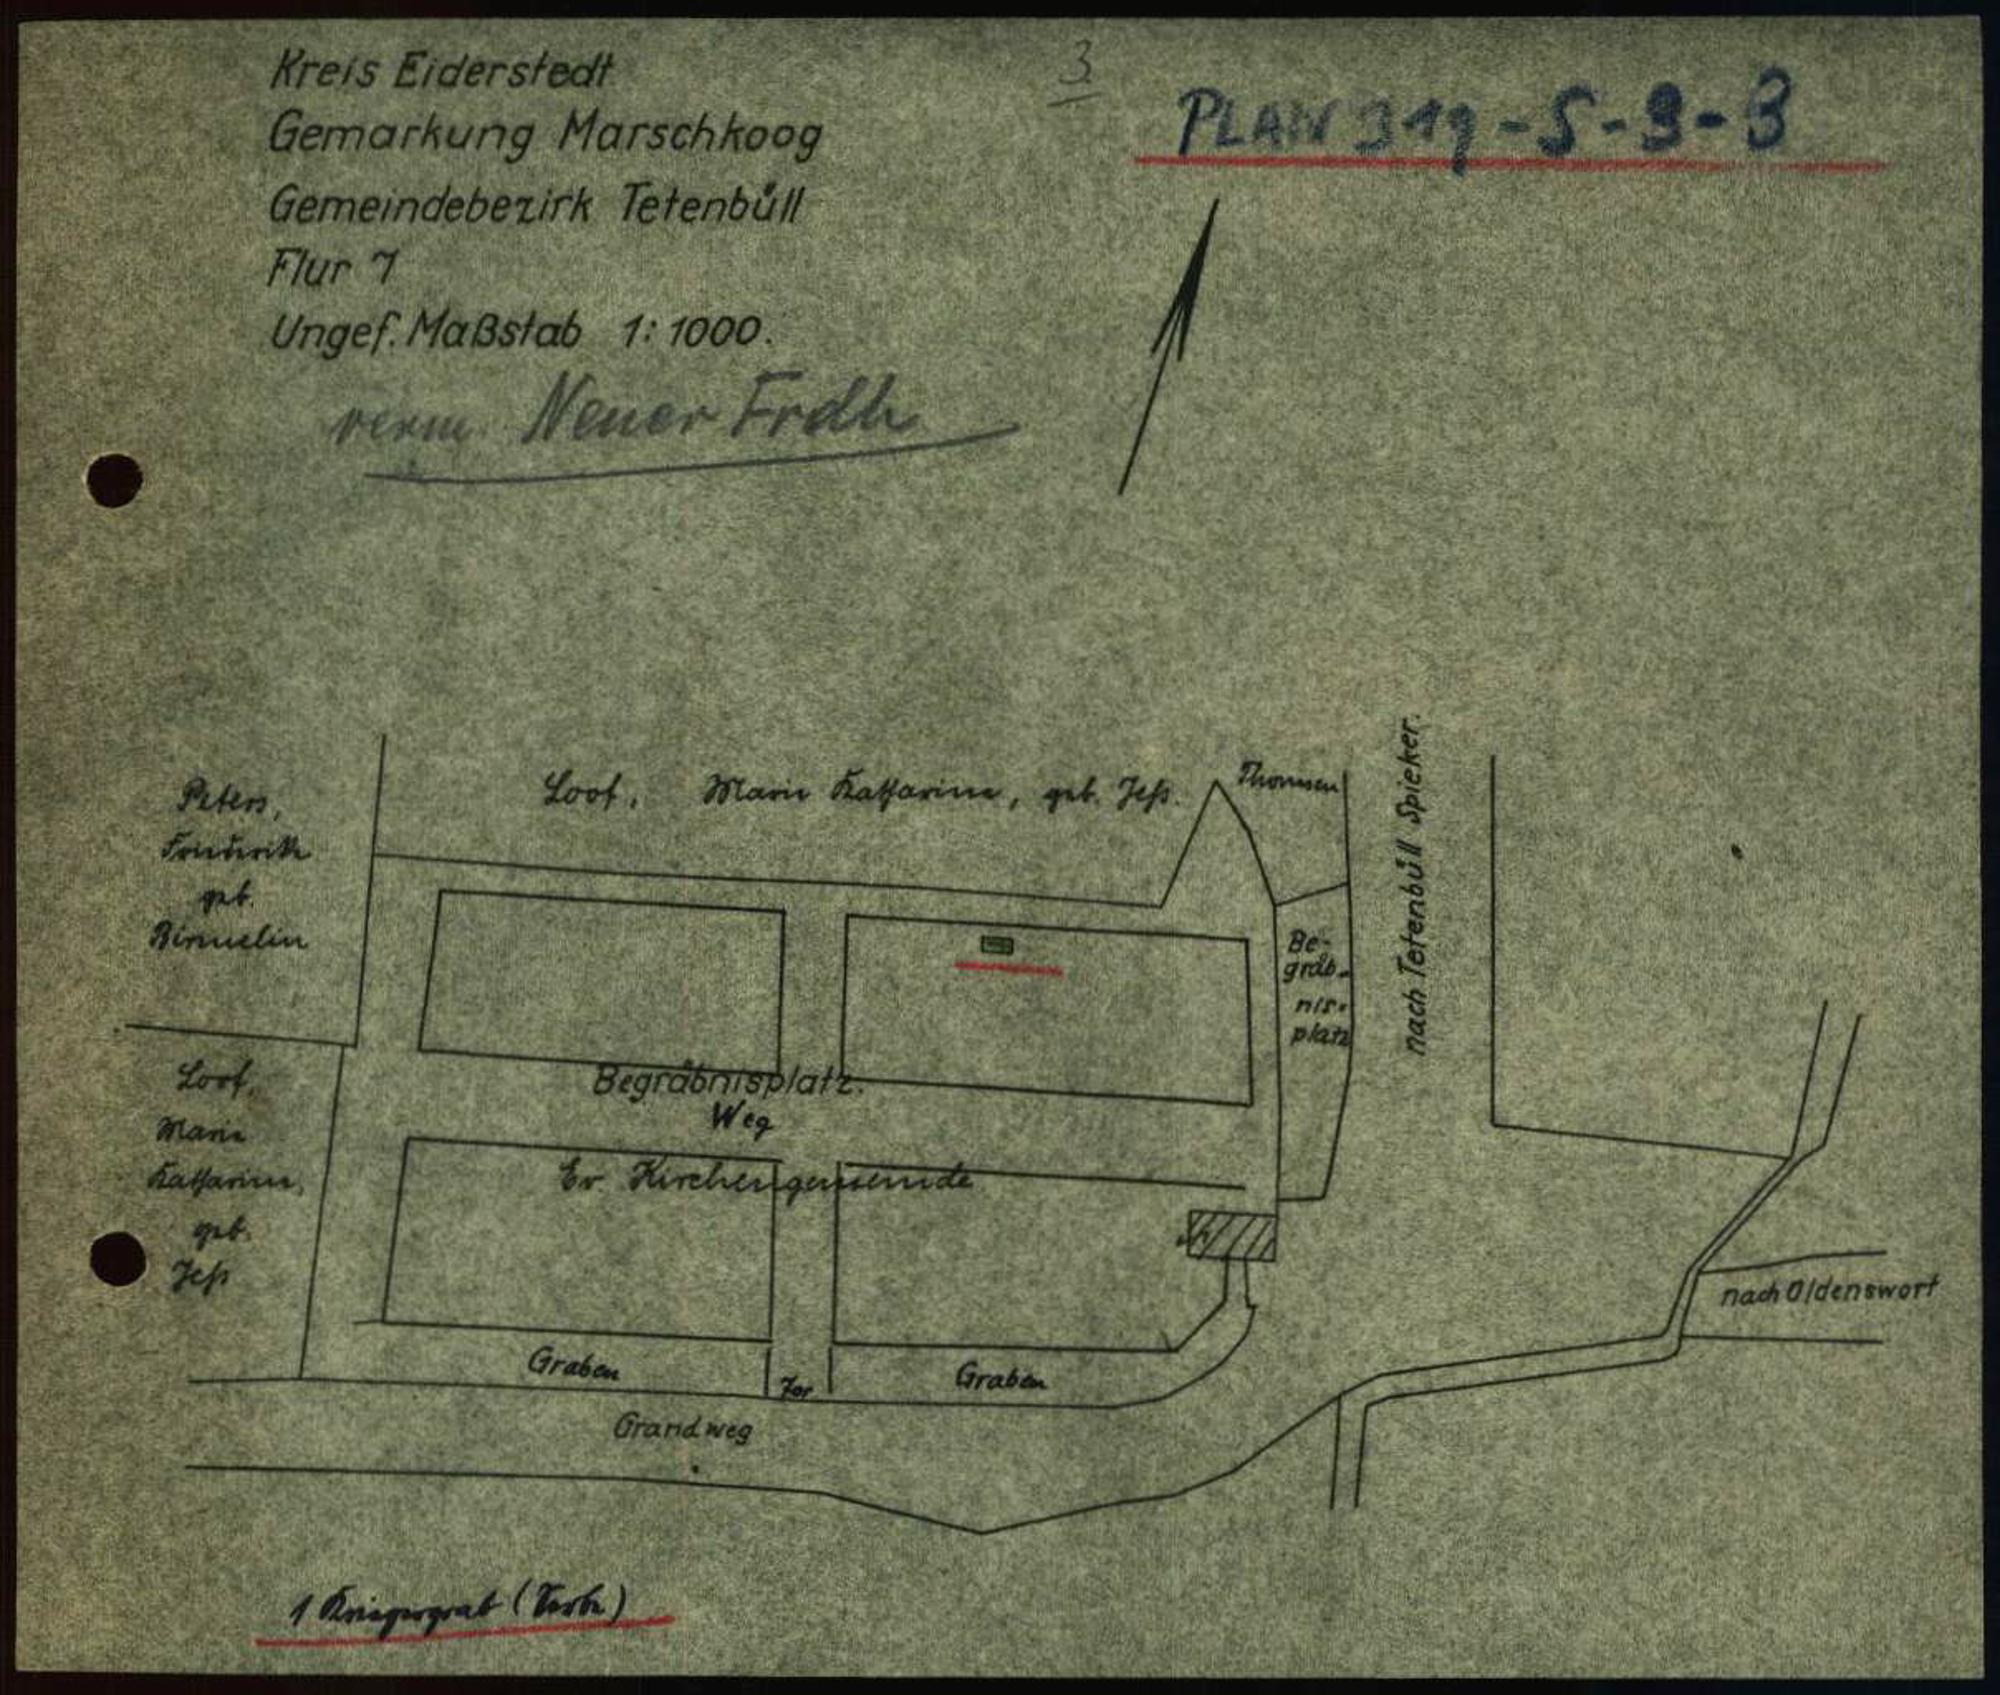 3
PLAN 319-S-9-3
Kreis Eiderstedt
Gemarkung Marschkoog
Gemeindebezirk Tetenbüll
Flur 7
Ungef. Maßstab 1:1000.
verm. Neuer Frdh
Peters,
Friederike
geb.
Birmelin
Loof, Marie Katharine, geb. Jeß.
Thomsen
nach Tetenbüll Spieker.
Be-
gräb-
nis-
platz
Begräbnisplatz.
Weg
Ev. Kirchengemeinde
Loof,
Marie
Katharine,
geb.
Jeß
nach Oldenswort
Graben
Tor
Graben
Grandweg
1 Kriegergrab (Serbe)